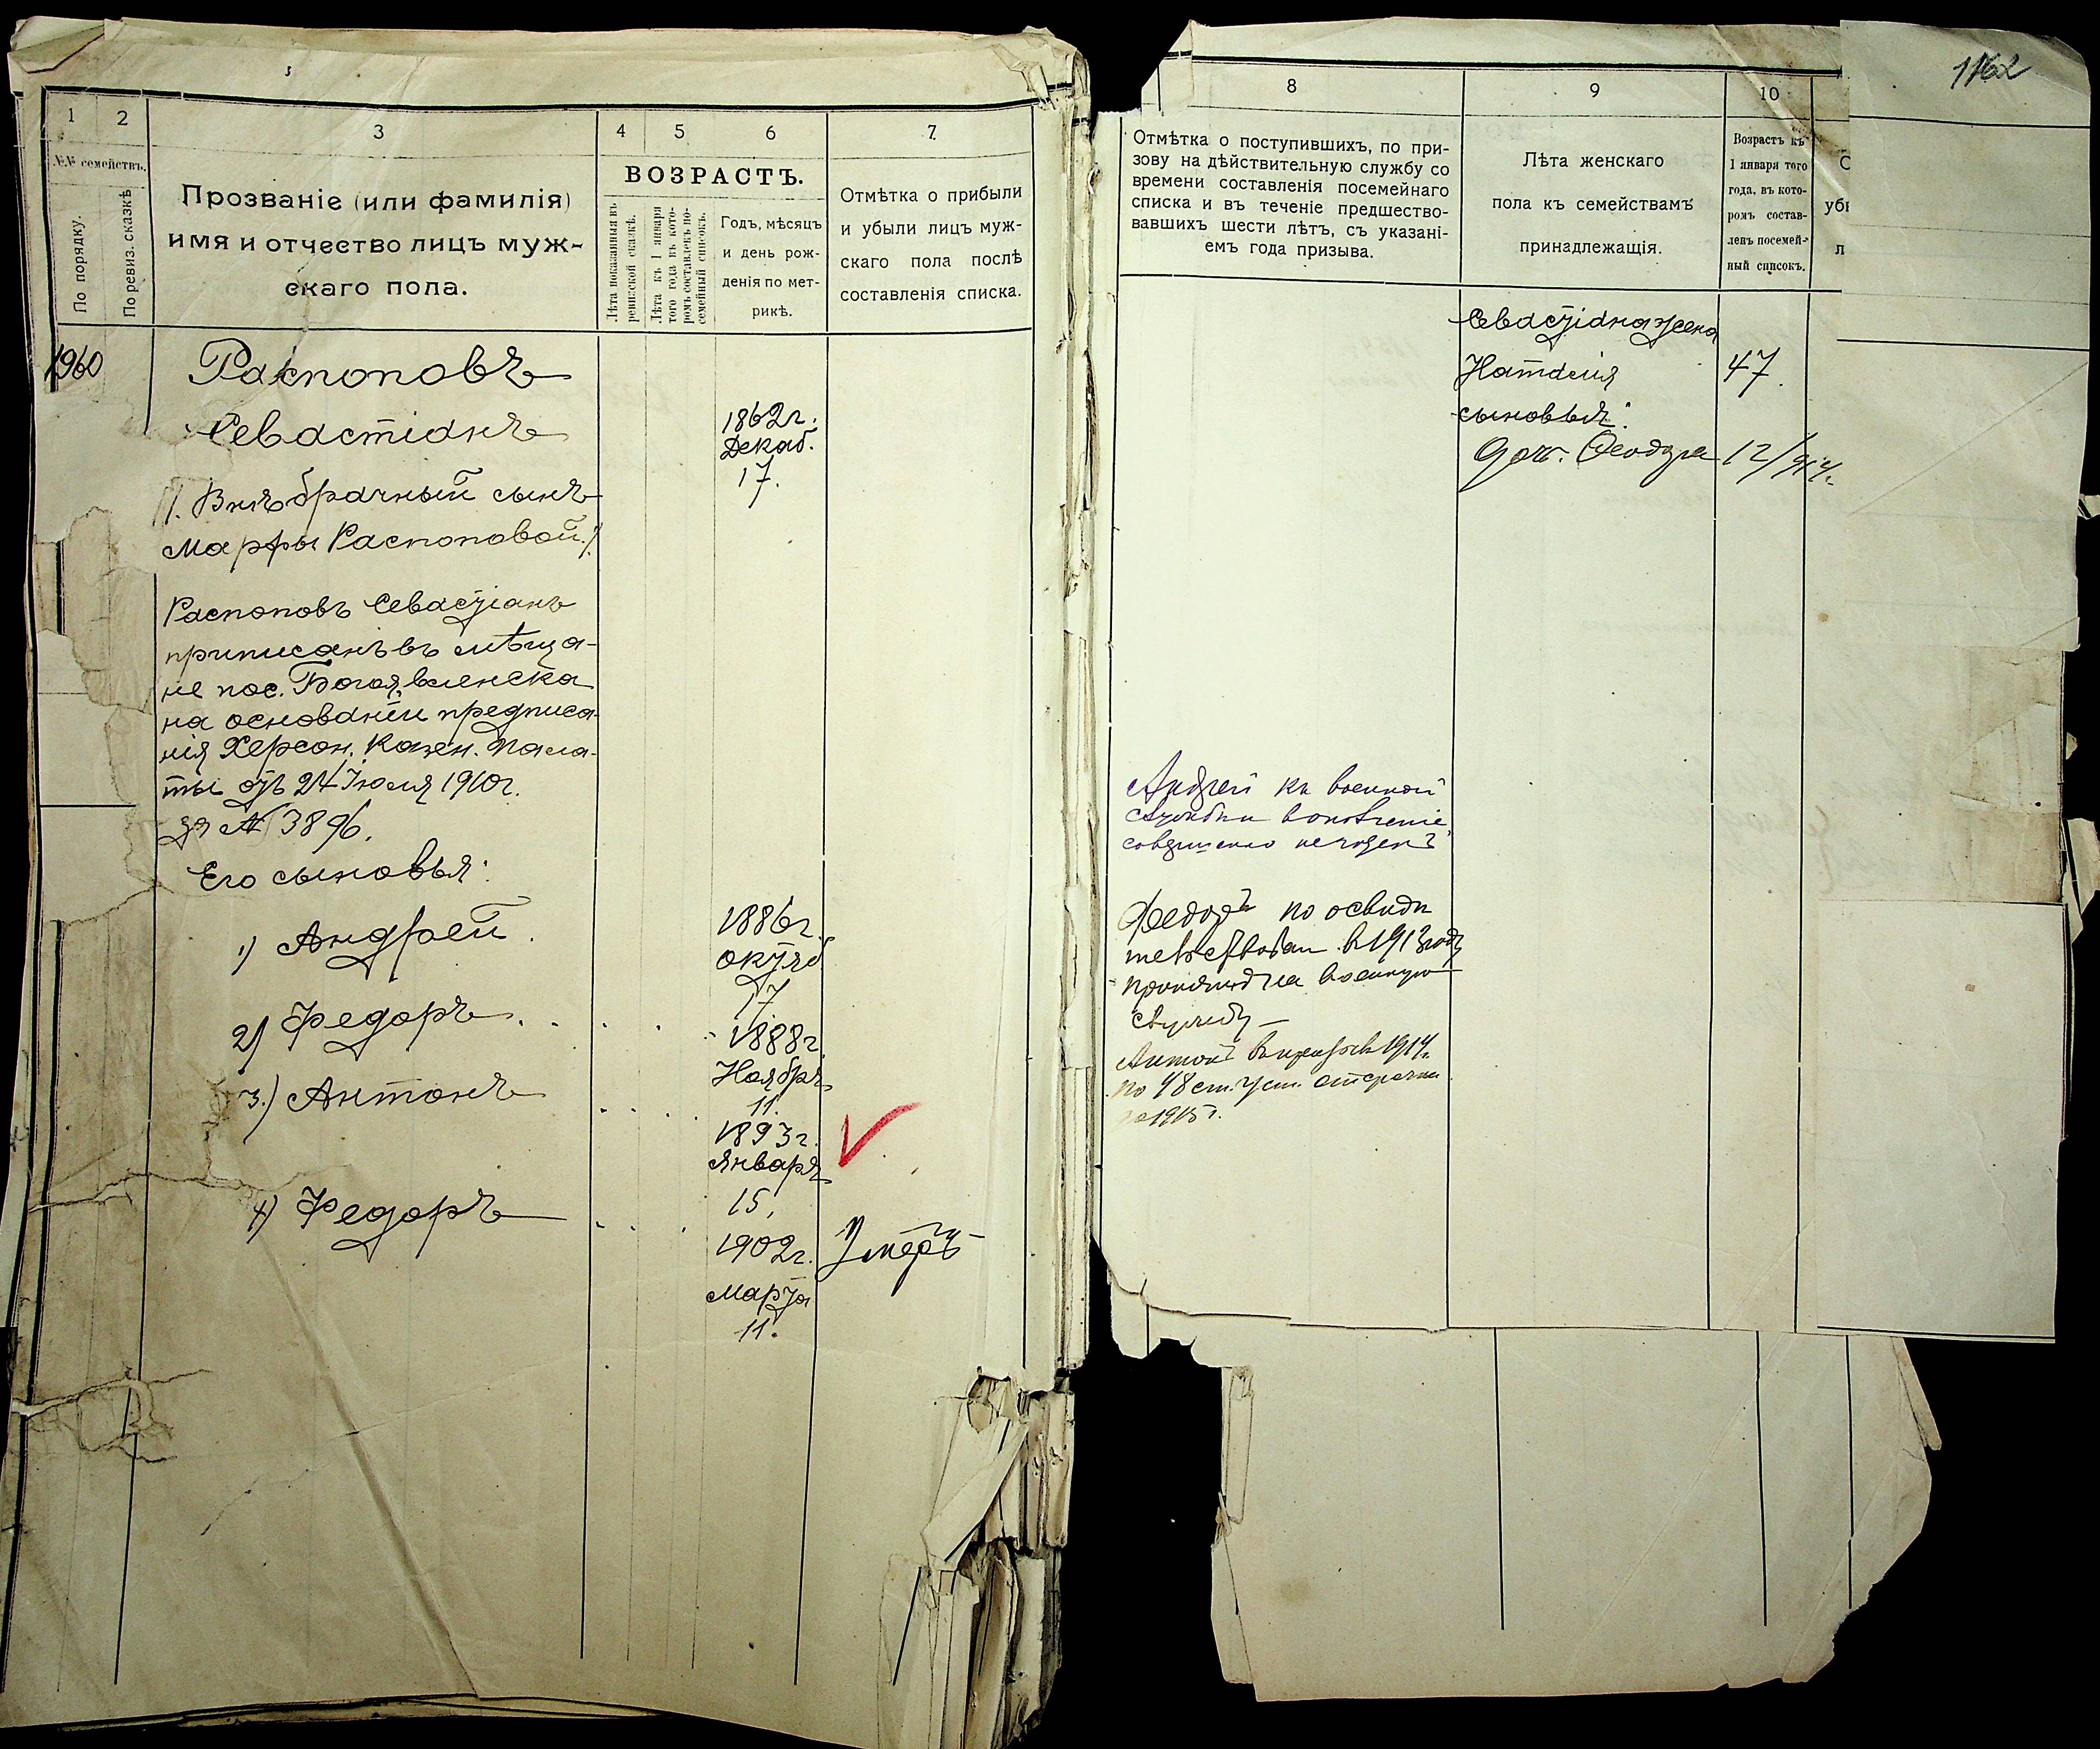 1162
1 2 3 4 5 6 7
№№ семействъ.
По порядку.
По ревиз. сказкѣ
Прозваніе (или фамилія)
имя и отчество лицъ муж-
скаго пола.
ВОЗРАСТЪ.
Лѣта показанныя въ
ревизской сказкѣ.
Лѣта къ 1 января
того года въ кото-
ромъ составленъ по-
семейный списокъ.
Годъ, мѣсяцъ
и день рож-
денія по мет-
рикѣ.
Отмѣтка о прибыли
и убыли лицъ муж-
скаго пола послѣ
составленія списка.
1960
Распоповъ
Севастіанъ
1862г.
Декаб.
17.
/. Внѣбрачный сынъ
Марфы Распоповой./
Распоповъ Севастіанъ
приписанъ въ мѣща-
не пос. Богоявленска
на основаніи предписа-
нія Херсон. Казен. Пала-
ты отъ 24 Іюля 1910г.
за № 3896.
Его сыновья:
1) Андрей.
1886г.
октяб
17.
2) Федоръ
1888г.
Ноября
11.
3.) Антонъ
1893г.
Января
15.
4) Федоръ
1902г.
Марта
11.
Умеръ
8 9 10
Отмѣтка о поступившихъ, по при-
зову на дѣйствительную службу со
времени составленія посемейнаго
списка и въ теченіе предшество-
вавшихъ шести лѣтъ, съ указані-
емъ года призыва.
Лѣта женскаго
пола къ семействамъ
принадлежащія.
Возрастъ къ
1 января того
года, въ кото-
ромъ состав-
ленъ посемей-
ный списокъ.
С
убы
л
Севастіана жена
Наталия
47.
сыновья:
доч. Феодора 12/914г.
Андрей къ военной
службѣ
совершенно негоденъ
Федоръ по освиде
тельствован. в 1913 году
принятъ на военную
службу —
Антонъ в 1914г.
по 48 ст. уст. отсрочка
1915г.